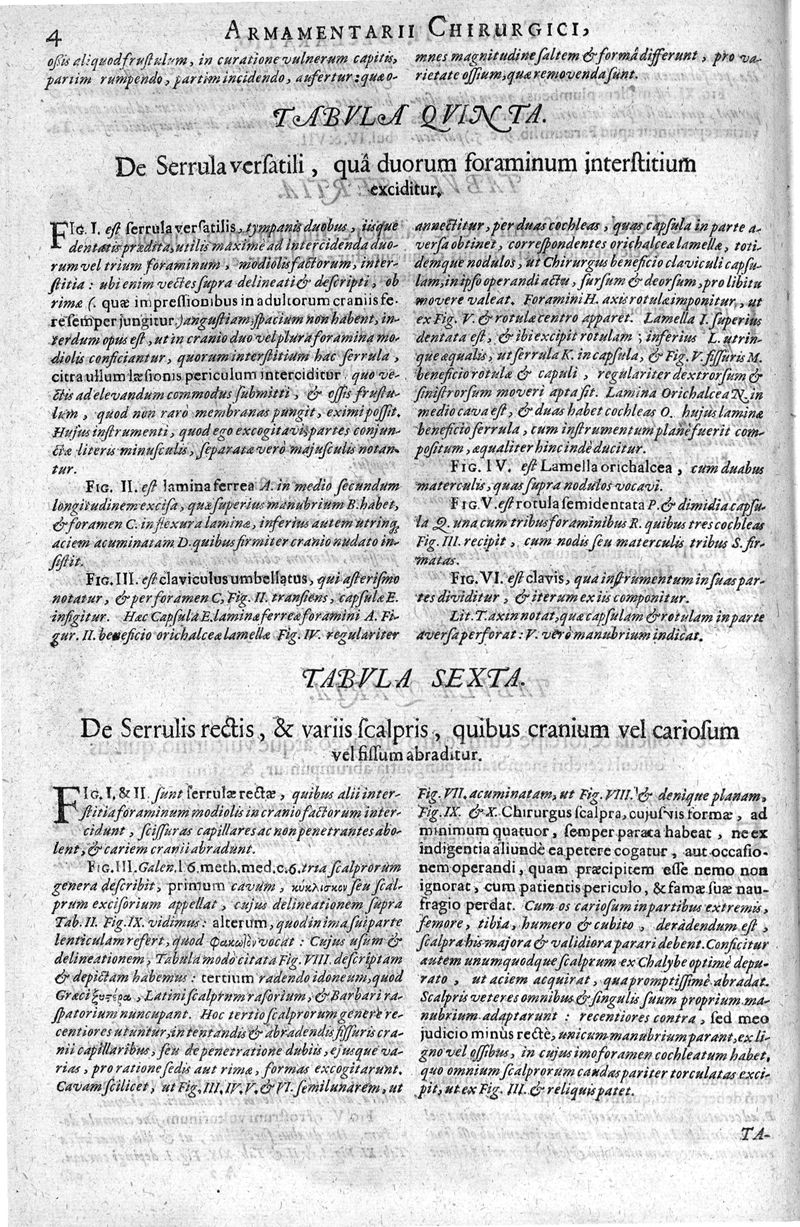 4 ARMAMENTARII CHIRURGICI,
oſſis aliquod fruſtulum, in curatione vulnerum capitis,
partim rumpendo, partim incidendo, aufertur: quæ o-
mnes magnitudine ſaltem & formâ differunt, pro va-
rietate oſſium, quæ removenda ſunt.
TABULA QUINTA.
De Serrula verſatili, quâ duorum foraminum interſtitium
exciditur.
FIG. I. eſt ſerrula verſatilis, tympanis duobus, iisque
dentatis prædita, utilis maxime ad intercidenda duo-
rum vel trium foraminum, modiolis factorum, inter-
ſtitia: ubi enim vectes ſupra delineati & deſcripti, ob
rimæ (. quæ impreſſionibus in adultorum craniis fe-
re ſemper jungitur,) anguſtiam, ſpacium non habent, in-
terdum opus eſt, ut in cranio duo vel plura foramina mo-
diolis conficiantur, quorum interſtitium hac ſerrula,
citra ullum læſionis periculum interciditur. quo ve-
ctis ad elevandum commodus ſubmitti, & oſſis fruſtu-
lum, quod non raro membranas pungit, eximi poſſit.
Hujus inſtrumenti, quod ego excogitavi, partes conjun-
ctæ literis minuſculis, ſeparatæ verò majuſculis notan-
tur.
FIG. II. eſt lamina ferrea A. in medio ſecundum
longitudinem exciſa, quæ ſuperius manubrium B. habet,
& foramen C. in flexura laminæ, inferius autem utrinq;
aciem acuminatam D. quibus firmiter cranio nudato in-
ſiſtit.
FIG. III. eſt claviculus umbellatus, qui aſteriſmo
notatur, & per foramen C, Fig. II. tranſiens, capſulæ E.
infigitur. Hæc Capſula E. laminæ ferreæ foramini A. Fi-
gur. II. beneficio orichalceæ lamellæ Fig. IV. regulariter
annectitur, per duas cochleas, quas capſula in parte a-
verſa obtinet, correſpondentes orichalceæ lamellæ, toti-
demque nodulos, ut Chirurgus beneficio claviculi capſu-
lam, in ipſo operandi actu, ſurſum & deorſum, pro libitu
movere valeat. Foramini H. axis rotulæ imponitur, ut
ex Fig. V. & rotulæ centro apparet. Lamella I. ſuperius
dentata eſt, & ibi excipit rotulam; inferius L. utrin-
que æqualis, ut ſerrula K. in capſula, & Fig. V. fiſſuris M.
beneficio rotulæ & capuli, regulariter dextrorſum &
ſiniſtrorſum moveri apta ſit. Lamina Orichalcea N. in
medio cava eſt, & duas habet cochleas O. hujus laminæ
beneficio ſerrula, cum inſtrumentum planè fuerit com-
poſitum, æqualiter hinc indè ducitur.
FIG. IV. eſt Lamella orichalcea, cum duabus
materculis, quas ſupra nodulos vocavi.
FIG. V. eſt rotula ſemidentata P. & dimidia capſu-
la Q. una cum tribus foraminibus R. quibus tres cochleas
Fig. III. recipit, cum nodis ſeu materculis tribus S. fir-
matas.
FIG. VI. eſt clavis, qua inſtrumentum in ſuas par-
tes dividitur, & iterum ex iis componitur.
Lit. T. axin notat, quæ capſulam & rotulam in parte
averſa perforat: V. verò manubrium indicat.
TABULA SEXTA.
De Serrulis rectis, & variis ſcalpris, quibus cranium vel carioſum
vel fiſſum abraditur.
FIG. I, & II. ſunt ſerrulæ rectæ, quibus alii inter-
ſtitia foraminum modiolis in cranio factorum inter-
cidunt, ſciſſuras capillares ac non penetrantes abo-
lent, & cariem cranii abradunt.
FIG. III. Galen. l 6. meth. med. c. 6. tria ſcalprorum
genera deſcribit, primum cavum, κυκλίσκον ſeu ſcal-
prum exciſorium appellat, cujus delineationem ſupra
Tab. II. Fig. IX. vidimus: alterum, quod in ima ſui parte
lenticulam refert, quod φακωτὸν vocat: Cujus uſum &
delineationem, Tabula modo citata Fig. VIII. deſcriptam
& depictam habemus: tertium radendo idoneum, quod
Græci ξυστῆρα, Latini ſcalprum raſorium, & Barbari ra-
ſpatorium nuncupant. Hoc tertio ſcalprorum genere re-
centiores utuntur, in tentandis & abradendis fiſſuris cra-
nii capillaribus, ſeu de penetratione dubiis, ejusque va-
rias, pro ratione ſedis aut rimæ, formas excogitarunt.
Cavam ſcilicet, ut Fig. III, IV, V, & VI. ſemilunarem, ut
Fig. VII. acuminatam, ut Fig. VIII. & denique planam,
Fig. IX. & X. Chirurgus ſcalpra, cujuſvis formæ, ad
minimum quatuor, ſemper parata habeat, ne ex
indigentia aliundè ea petere cogatur, aut occaſio-
nem operandi, quam præcipitem eſſe nemo non
ignorat, cum patientis periculo, & famæ ſuæ nau-
fragio perdat. Cum os carioſum in partibus extremis,
femore, tibia, humero & cubito, deradendum eſt,
ſcalpra his majora & validiora parari debent. Conficitur
autem unumquodque ſcalprum ex Chalybe optimè depu-
rato, ut aciem acquirat, qua promptiſſimè abradat.
Scalpris veteres omnibus & ſingulis ſuum proprium ma-
nubrium adaptarunt: recentiores contra, ſed meo
judicio minus rectè, unicum manubrium parant, ex li-
gno vel oſſibus, in cujus imo foramen cochleatum habet,
quo omnium ſcalprorum caudas pariter torculatas exci-
pit, ut ex Fig. III. & reliquis patet.
TA-